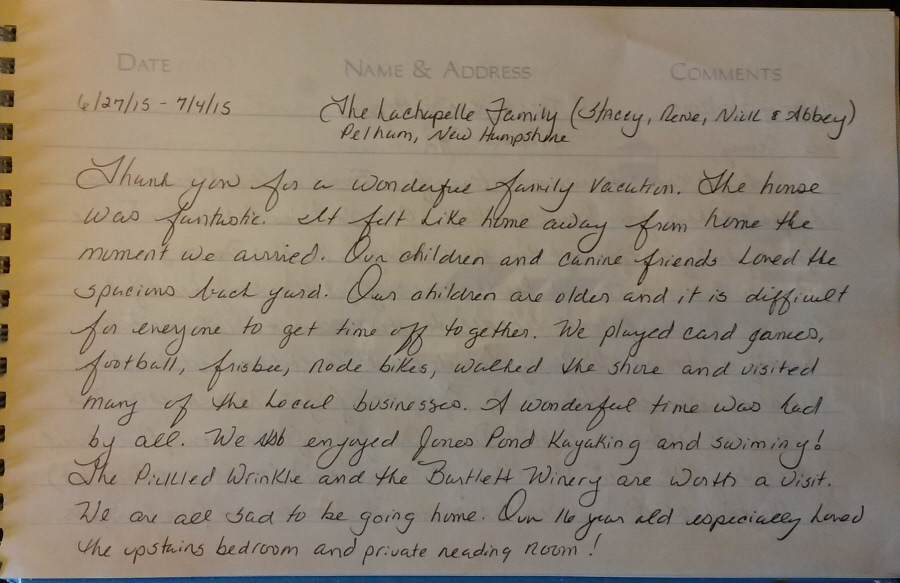 DATE NAME & ADDRESS COMMENTS
6/27/15 - 7/4/15 The Lachapelle Family (Stacey, Rene, Nick & Abbey)
Pelham, New Hampshire
Thank you for a wonderful family vacation. The house
was fantastic. It felt like home away from home the
moment we arrived. Our children and canine friends loved the
spacious back yard. Our children are older and it is difficult
for everyone to get time off together. We played card games,
football, frisbee, rode bikes, walked the shore and visited
many of the local businesses. A wonderful time was had
by all. We also enjoyed Jones Pond Kayaking and swiming!
The Pickled Wrinkle and the Bartlett Winery are worth a visit.
We are all sad to be going home. Our 16 year old especially loved
the upstairs bedroom and private reading room!